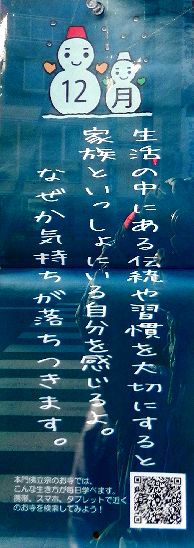 12月
生活の中にある伝統や習慣を大切にすると
家族といっしょにいる自分を感じるよ。
なぜか気持ちが落ちつきます。
本門佛立宗のお寺では、
こんな生き方が毎日学べます。
携帯、スマホ、タブレットで近く
のお寺を検索してみよう！